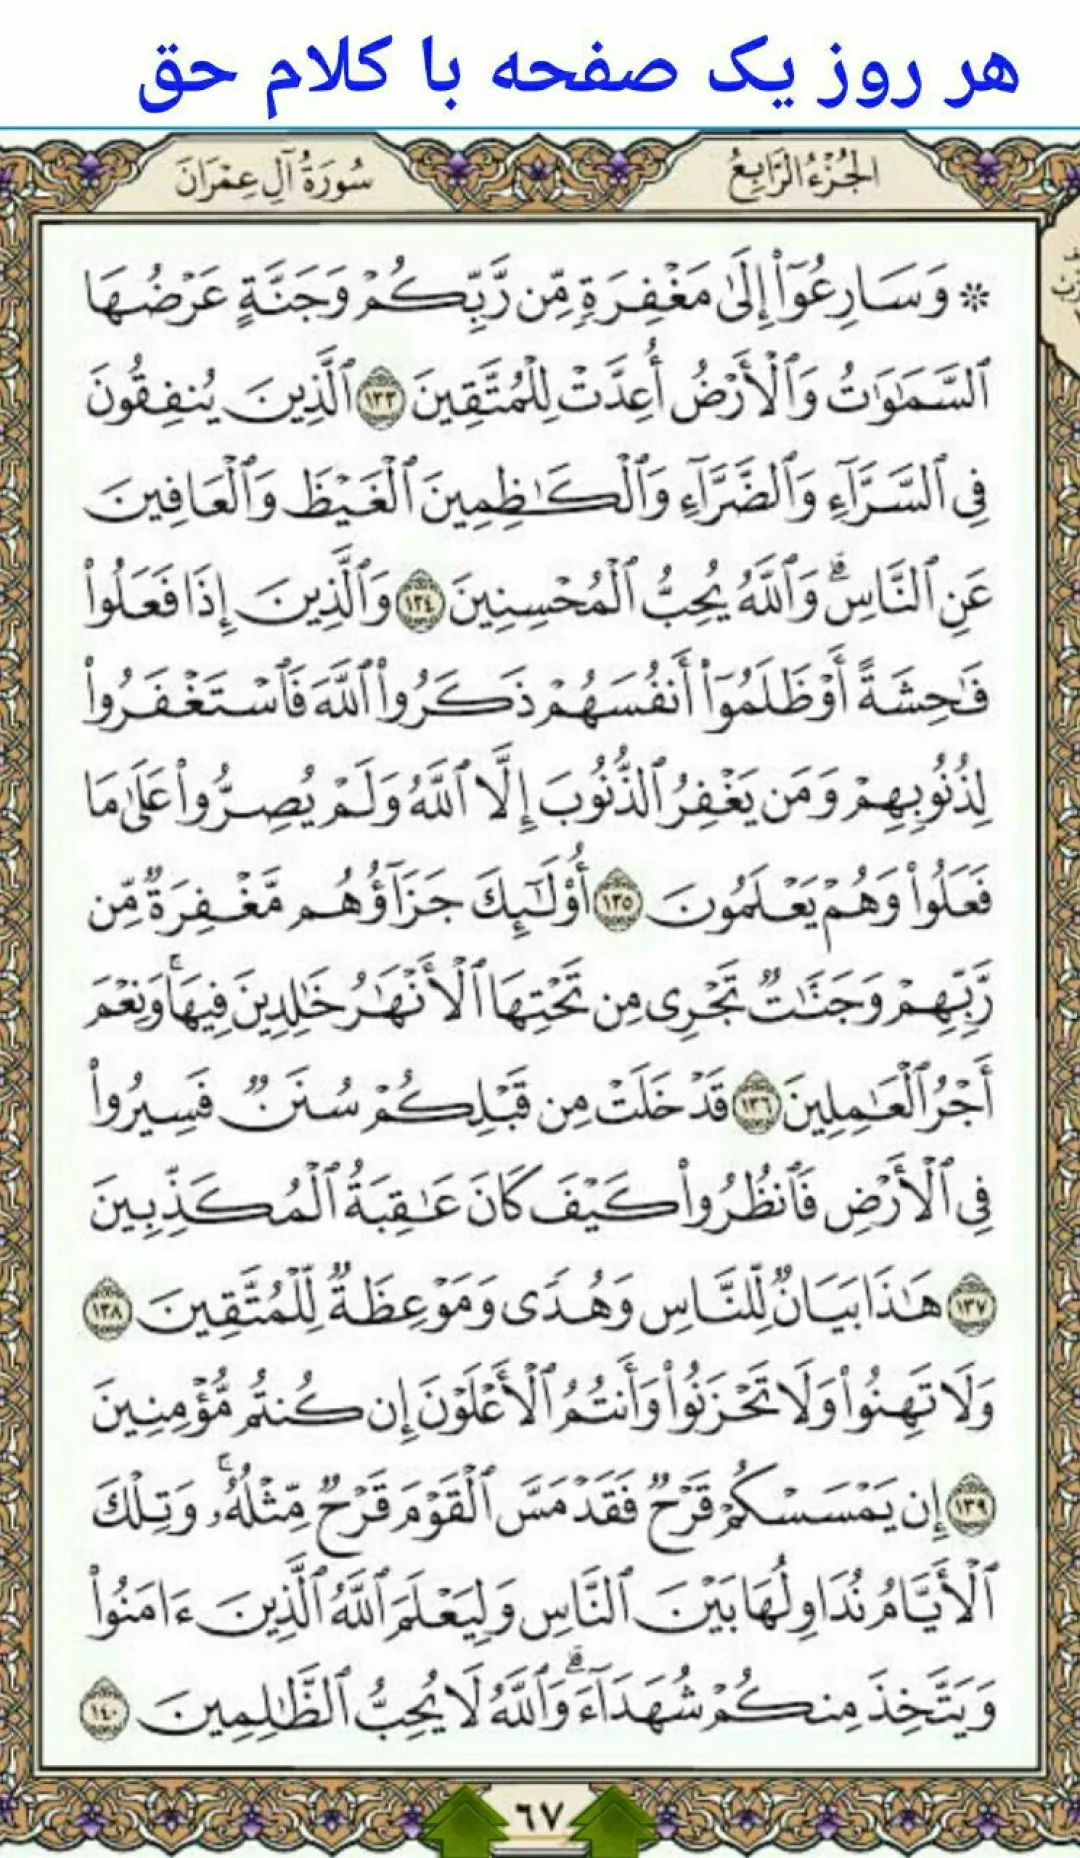 هر روز یک صفحه با کلام حق
سُورَةُ آلِ عِمْرَانَ
الجُزْءُ الرَّابِعُ
۞ وَسَارِعُوٓا۟ إِلَىٰ مَغْفِرَةٍ مِّن رَّبِّكُمْ وَجَنَّةٍ عَرْضُهَا
ٱلسَّمَـٰوَٰتُ وَٱلْأَرْضُ أُعِدَّتْ لِلْمُتَّقِينَ ١٣٣ ٱلَّذِينَ يُنفِقُونَ
فِى ٱلسَّرَّآءِ وَٱلضَّرَّآءِ وَٱلْكَـٰظِمِينَ ٱلْغَيْظَ وَٱلْعَافِينَ
عَنِ ٱلنَّاسِ ۗ وَٱللَّهُ يُحِبُّ ٱلْمُحْسِنِينَ ١٣٤ وَٱلَّذِينَ إِذَا فَعَلُوا۟
فَـٰحِشَةً أَوْ ظَلَمُوٓا۟ أَنفُسَهُمْ ذَكَرُوا۟ ٱللَّهَ فَٱسْتَغْفَرُوا۟
لِذُنُوبِهِمْ وَمَن يَغْفِرُ ٱلذُّنُوبَ إِلَّا ٱللَّهُ وَلَمْ يُصِرُّوا۟ عَلَىٰ مَا
فَعَلُوا۟ وَهُمْ يَعْلَمُونَ ١٣٥ أُو۟لَـٰٓئِكَ جَزَآؤُهُم مَّغْفِرَةٌ مِّن
رَّبِّهِمْ وَجَنَّـٰتٌ تَجْرِى مِن تَحْتِهَا ٱلْأَنْهَـٰرُ خَـٰلِدِينَ فِيهَا ۚ وَنِعْمَ
أَجْرُ ٱلْعَـٰمِلِينَ ١٣٦ قَدْ خَلَتْ مِن قَبْلِكُمْ سُنَنٌ فَسِيرُوا۟
فِى ٱلْأَرْضِ فَٱنظُرُوا۟ كَيْفَ كَانَ عَـٰقِبَةُ ٱلْمُكَذِّبِينَ
١٣٧ هَـٰذَا بَيَانٌ لِّلنَّاسِ وَهُدًى وَمَوْعِظَةٌ لِّلْمُتَّقِينَ ١٣٨
وَلَا تَهِنُوا۟ وَلَا تَحْزَنُوا۟ وَأَنتُمُ ٱلْأَعْلَوْنَ إِن كُنتُم مُّؤْمِنِينَ
١٣٩ إِن يَمْسَسْكُمْ قَرْحٌ فَقَدْ مَسَّ ٱلْقَوْمَ قَرْحٌ مِّثْلُهُۥ ۚ وَتِلْكَ
ٱلْأَيَّامُ نُدَاوِلُهَا بَيْنَ ٱلنَّاسِ وَلِيَعْلَمَ ٱللَّهُ ٱلَّذِينَ ءَامَنُوا۟
وَيَتَّخِذَ مِنكُمْ شُهَدَآءَ ۗ وَٱللَّهُ لَا يُحِبُّ ٱلظَّـٰلِمِينَ ١٤٠
٦٧